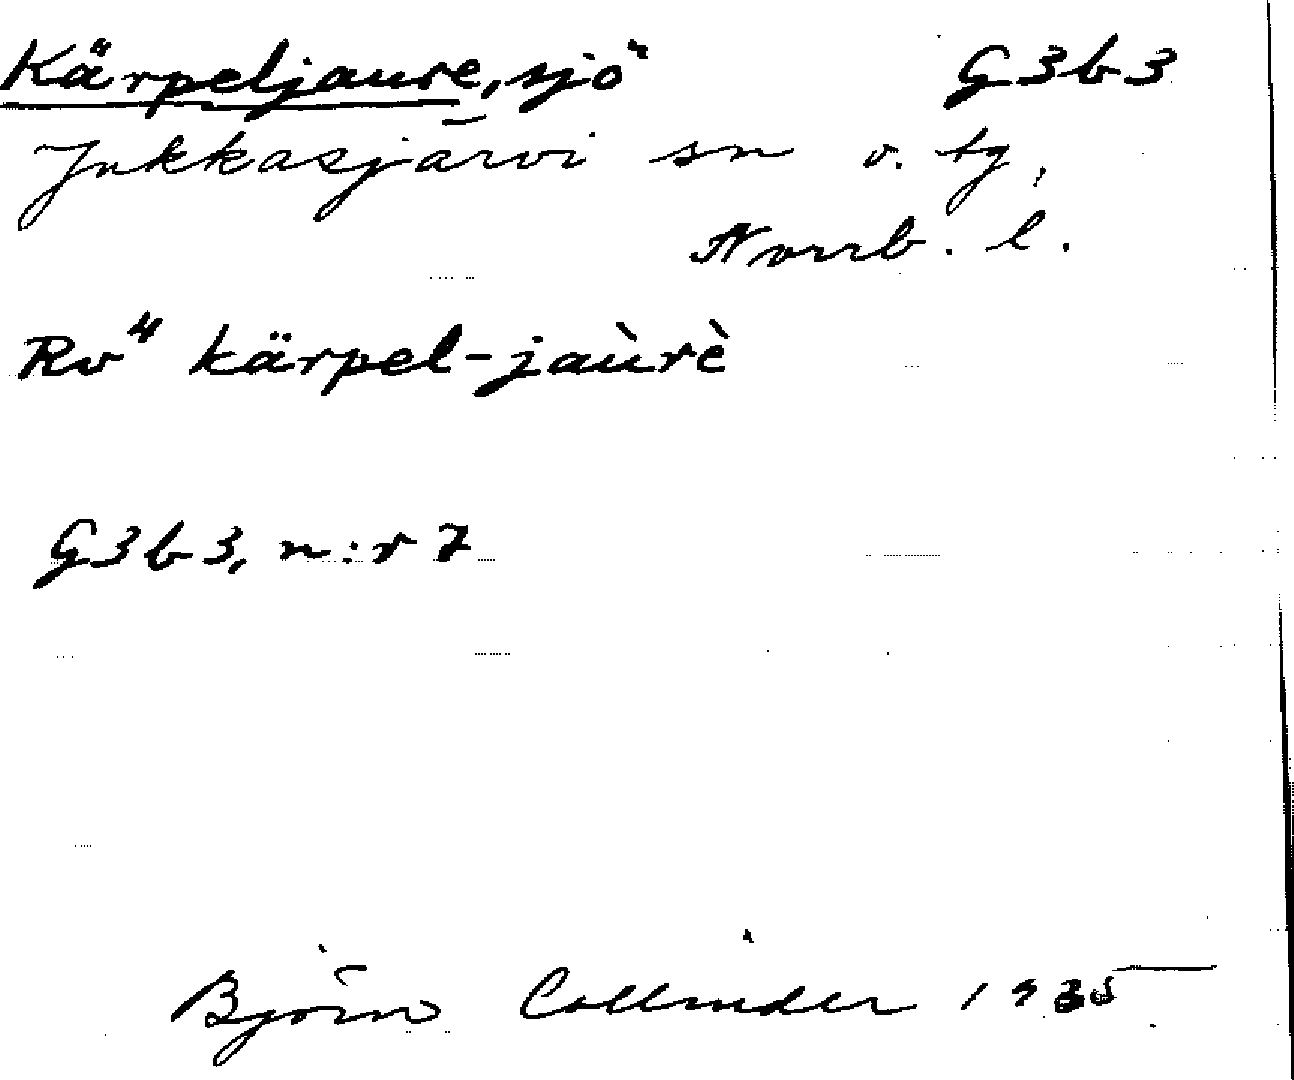 Kärpeljaure, sjö G3b3
Jukkasjärvi sn o. tg,
Norrb. l.
Rv" kärpel-jaùrè
G3b3, n:r 7
Björn Collinder 1935